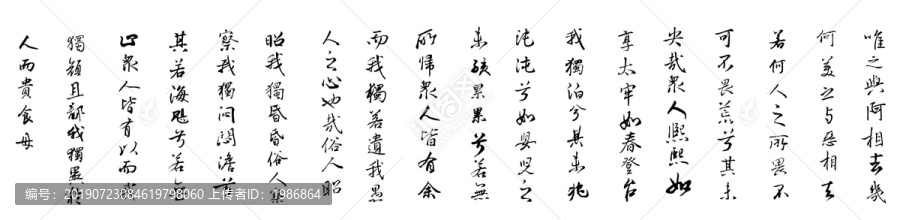 唯之與阿相去幾
何美之与惡相去
若何人之所畏不
可不畏荒兮其未
央哉衆人熙熙如
享太牢如春登台
我獨泊兮其未兆
沌沌兮如嬰兒之
未孩累累兮若無
所歸衆人皆有余
而我獨若遺我愚
人之心也哉俗人昭
昭我獨昏昏俗人察
察我獨闷闷澹兮
其若海飂兮若
止衆人皆有以而
獨頑且鄙我獨異於
人而貴食母
编号：20190723084619798060 上传者ID：1986864